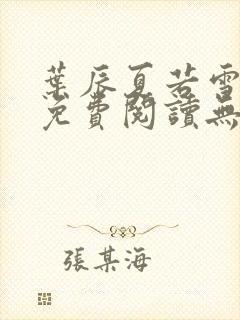 葉辰夏若雪
免費閱讀無
張某海